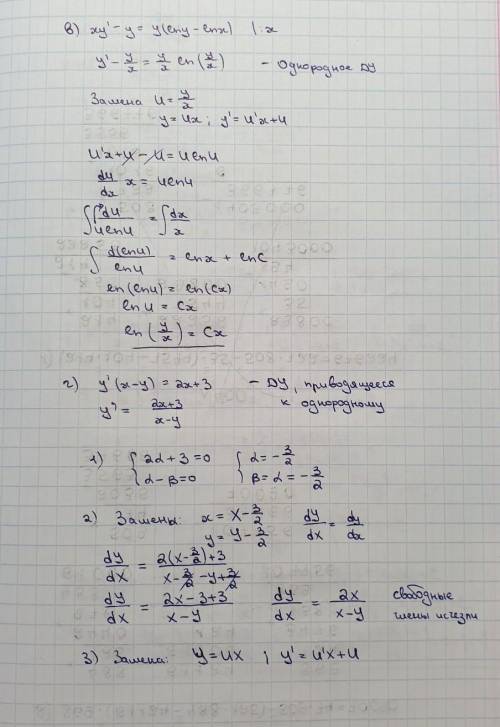 в) xy' - y = y(lny - lnx) | :x
y' - y/x = y/x ln(y/x) - Однородное ДУ
Замена u = y/x
y = ux ; y' = u'x + u
u'x + u - u = u ln u
du/dx x = u ln u
∫ du/(u ln u) = ∫ dx/x
∫ d(ln u)/ln u = ln x + ln C
ln(ln u) = ln(Cx)
ln u = Cx
ln(y/x) = Cx
г) y'(x-y) = 2x+3 - ДУ, приводящееся к однородному
y' = (2x+3)/(x-y)
1) { 2α + 3 = 0 { α = -3/2
{ α - β = 0 { β = α = -3/2
2) Замены: x = X - 3/2 dY/dX = dy/dx
y = Y - 3/2
dY/dX = (2(X - 3/2) + 3)/(X - 3/2 - Y + 3/2)
dY/dX = (2X - 3 + 3)/(X - Y) dY/dX = 2X/(X - Y) свободные члены исчезли
3) Замена: Y = UX ; Y' = U'X + U